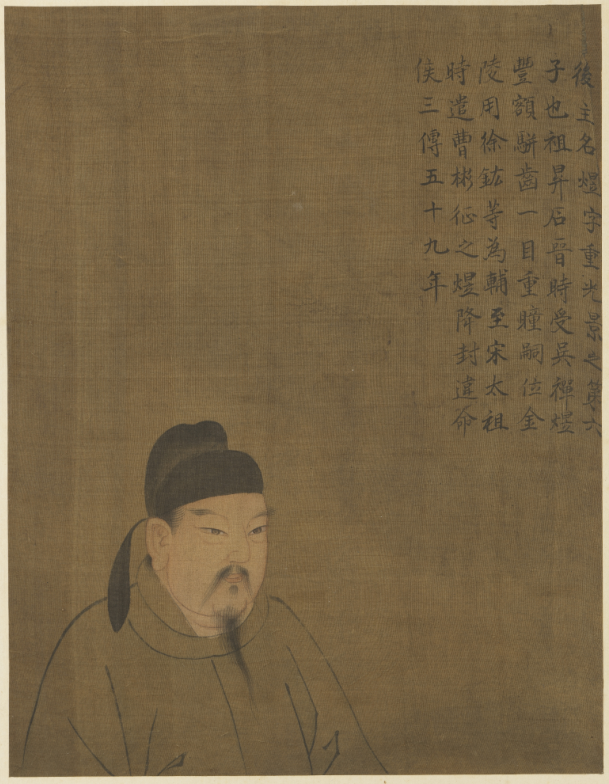 後主名煜字重光景之第六
子也祖昪石晉時受吳禪煜
豐額駢齒一目重瞳嗣位金
陵用徐鉉等為輔至宋太祖
時遣曹彬征之煜降封違命
侯三傳五十九年